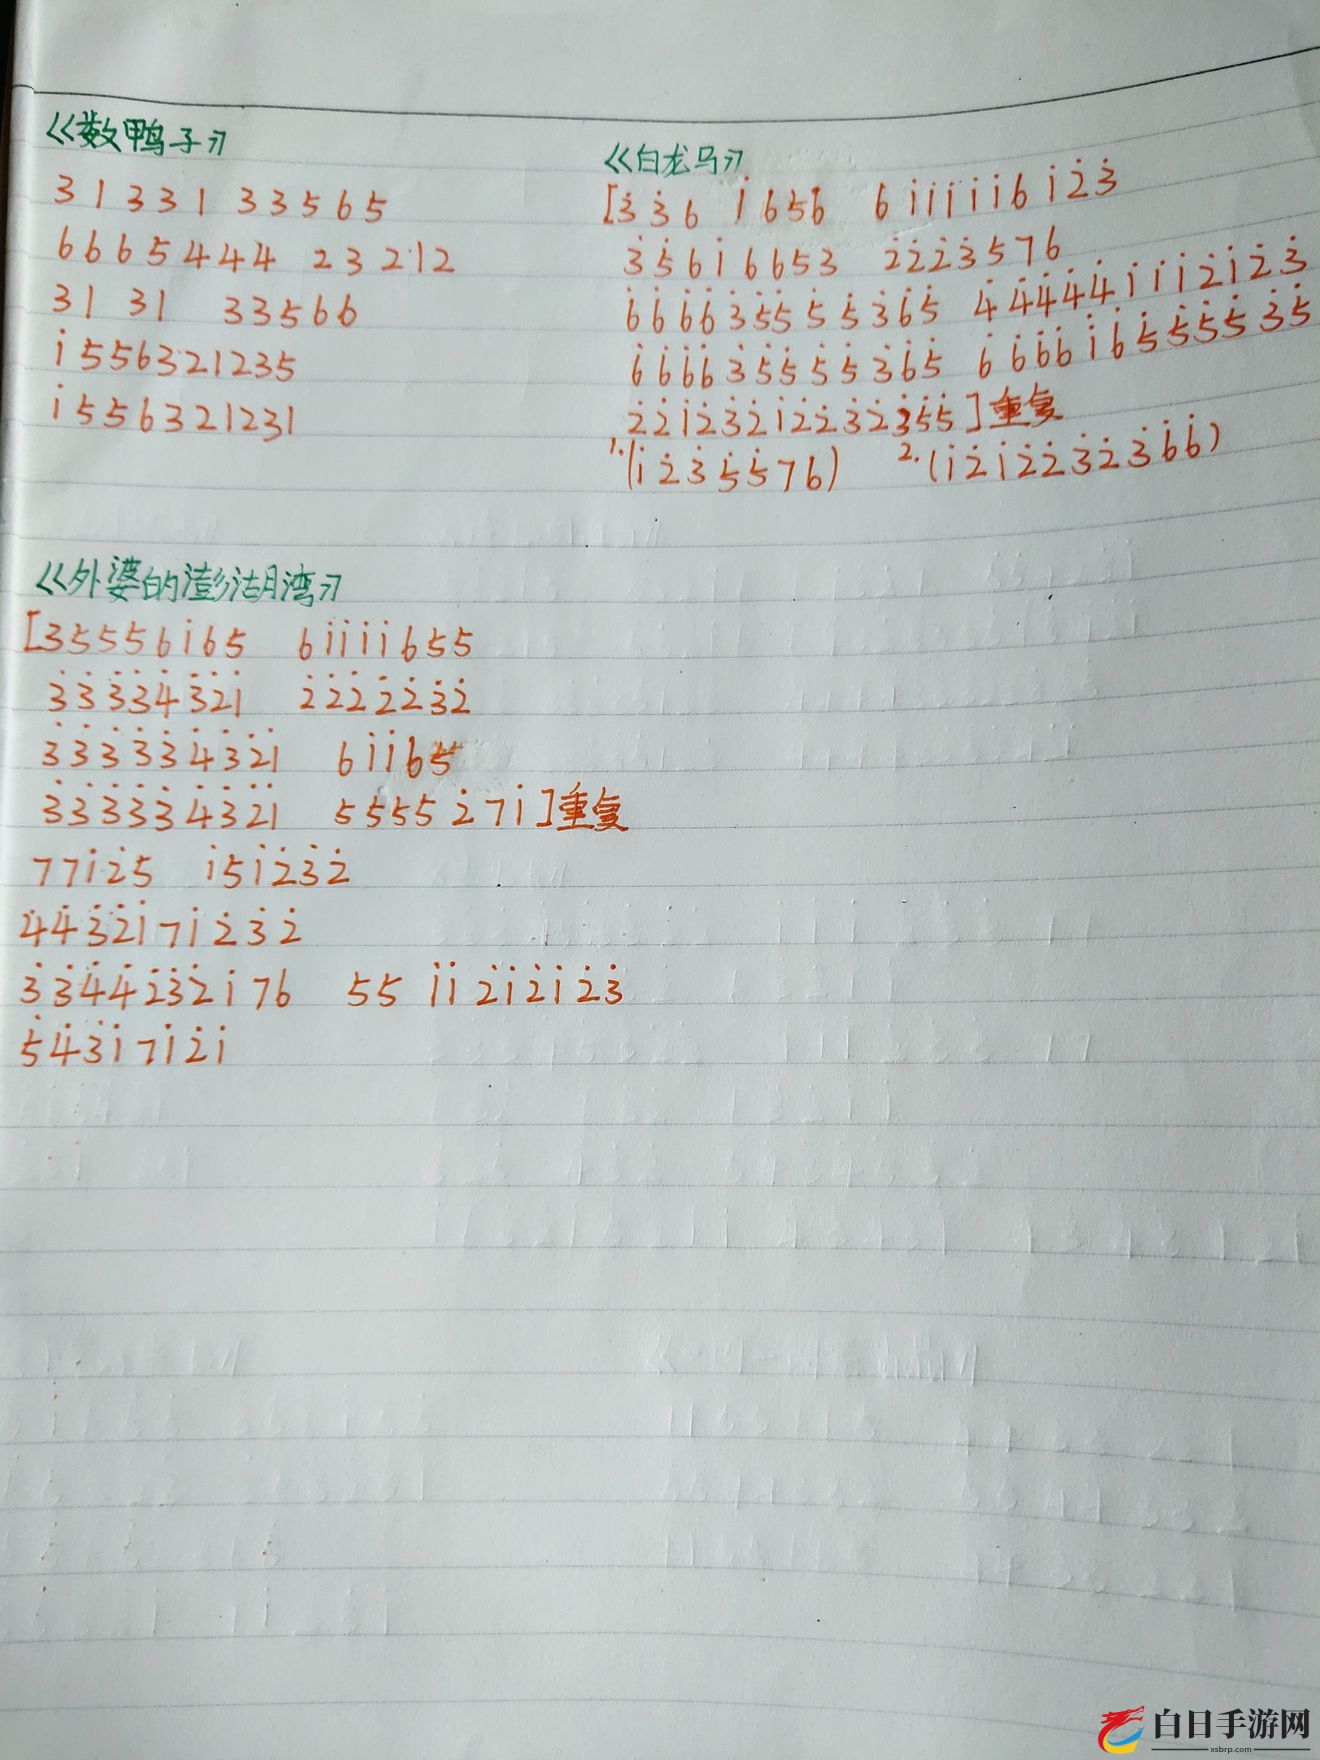 《数鸭子》
3 1 3 3 1 3 3 5 6 5
6 6 6 5 4 4 4 2 3 2 1 2
3 1 3 1 3 3 5 6 6
i̇ 5 5 6 3 2 1 2 3 5
i̇ 5 5 6 3 2 1 2 3 1
《白龙马》
[3̇ 3̇ 6 1̇ 6 5 6 6 1̇ 1̇ 1̇ 1̇ 1̇ 6 1̇ 2̇ 3̇
3̇ 5̇ 6 1̇ 6 6 5 3 2̇ 2̇ 2̇ 3̇ 5 7 6
6̇ 6̇ 6̇ 6̇ 3̇ 5̇ 5̇ 5̇ 5̇ 3̇ 6̇ 5̇ 4̇ 4̇ 4̇ 4̇ 4̇ 1̇ 1̇ 1̇ 2̇ 1̇ 2̇ 3̇
6̇ 6̇ 6̇ 6̇ 3̇ 5̇ 5̇ 5̇ 5̇ 3̇ 6̇ 5̇ 6̇ 6̇ 6̇ 6̇ 1̇ 6̇ 5̇ 5̇ 5̇ 5̇ 3̇ 5̇
2̇ 2̇ 1̇ 2̇ 3̇ 2̇ 1̇ 2̇ 2̇ 3̇ 2̇ 3̇ 5̇ 5̇ ]重复
1.(1̇ 2̇ 3̇ 5̇ 5̇ 7 6) 2.(1̇ 2̇ 1̇ 2̇ 2̇ 3̇ 2̇ 3̇ 6̇ 6̇)
《外婆的澎湖湾》
[3 5 5 5 6 1̇ 6 5 6 1̇ 1̇ 1̇ 1̇ 6 5 5
3̇ 3̇ 3̇ 3̇ 4̇ 3̇ 2̇ 1̇ 2̇ 2̇ 2̇ 2̇ 2̇ 3̇ 2̇
3̇ 3̇ 3̇ 3̇ 3̇ 4̇ 3̇ 2̇ 1̇ 6 1̇ 1̇ 6 5
3̇ 3̇ 3̇ 3̇ 3̇ 4̇ 3̇ 2̇ 1̇ 5 5 5 5 2̇ 7 1̇ ]重复
7 7 1̇ 2̇ 5 1̇ 5 1̇ 2̇ 3̇ 2̇
4̇ 4̇ 3̇ 2̇ 1̇ 7 1̇ 2̇ 3̇ 2̇
3̇ 3̇ 4̇ 4̇ 2̇ 3̇ 2̇ 1̇ 7 6 5 5 1̇ 1̇ 2̇ 1̇ 2̇ 1̇ 2̇ 3̇
5̇ 4̇ 3̇ 1̇ 7 1̇ 2̇ 1̇
白日手游网
xsbrp.com